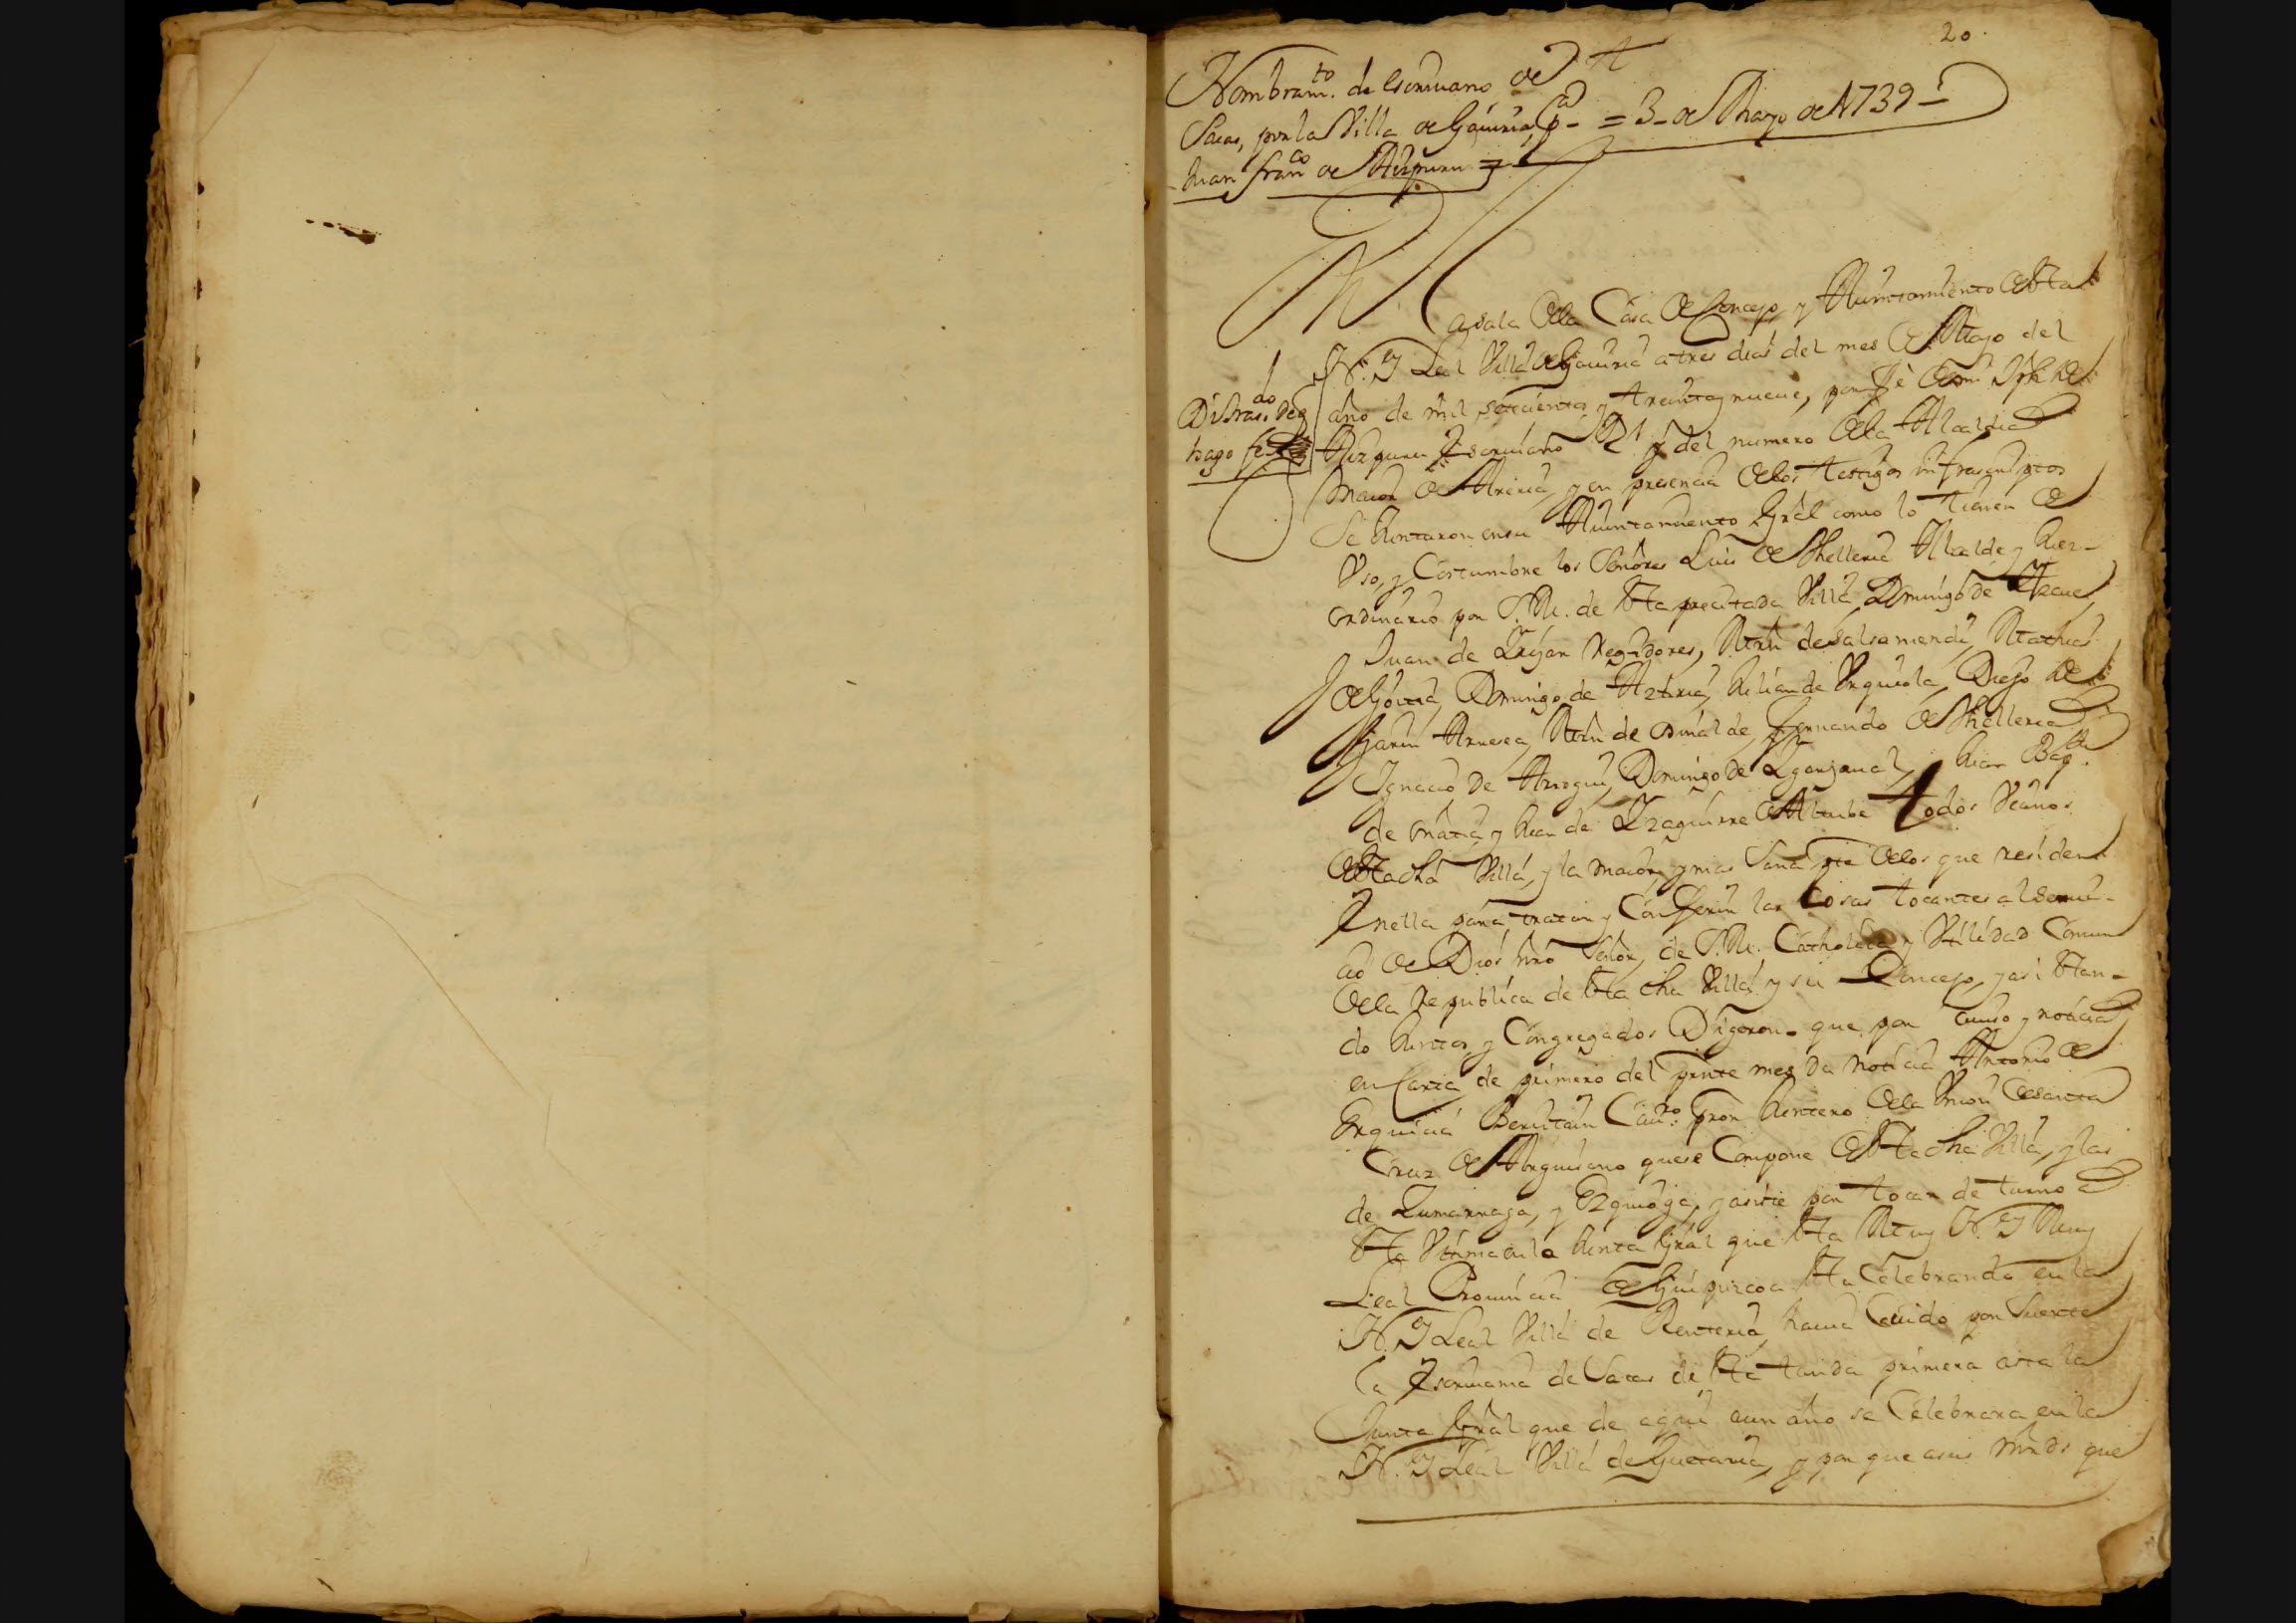 20.
Nombram.to de Escriuano de
Sacas, por la Villa de Gauiria, p.a = 3_ de Mayo de 1739_
Juan Fran.co de Aizpuru =
En la sala dela Casa de Concejo, y Aiuntamiento desta
N. y Leal Villa de Gauiria a tres dias del mes de Mayo del
año de mil setecientos y treinta y nueue, por fè de mi Jph de
Aizpuru Escriuano R.l y del numero dela Alcaldia
Maior de Areria, y en presencia delos testigos infrascriptos
Se Juntaron en su Aiuntamiento Gral como lo tienen de
Vso, y Costumbre los Señores Luis de Thelleria Alcalde y Juez
ordinario por S.M. de esta precitada Villa, Domingo de
Juan de Regidores, Mrn de Salsamendi, Mathias
de Goitia, Domingo de Julian de Vrquiola, Diego de
Mrn de Fernando de Thelleria
Ignacio de Domingo de Juan Bap.ta
de y Juan de Yzaguirre todos Vecinos
desta dha Villa, y la maior, y mas Sana pte delos que residen
Enella para tratar y Conferir las Cosas tocantes al serui-
cio de Dios nro Señor, de S.M. Catholica y Vtilidad Comun
dela Republica de esta dha Villa y su Concejo, y asi estan-
do Juntos, y Congregados Digeron que por auiso y noticia
en Carta de primero del preste mes da noticia Antonio de
Vrquicia Beristain Cau.ro Pror Juntero dela Vnion de Santa
Cruz de Arguisano que se Compone desta dha Villa, y las
de Zumarraga, y Ezquioga, y asiste por tocar de turno a
esta Vnion en la Junta Gral que esta Muy N. y Muy
Leal Prouincia de Guipuzcoa esta Celebrando en la
N. y Leal Villa de Renteria, hauia Caido por Suerte
la Escriuania de Sacas de esta tanda primera asta la
Junta Gral que de aqui a un año se Celebrara en la
N. y Leal Villa de Guetaria, y por que